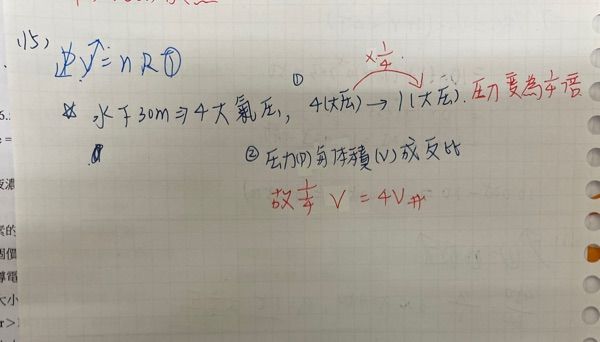 (15) PV=nRT
①
×1/4
水下30m⇒4大氣压, 4(大压)→1(大压). 压力變為1/4倍
②压力(P)與体積(V)成反比
故1/4 V=4V#
夜濃
素的
個價
導電
大小